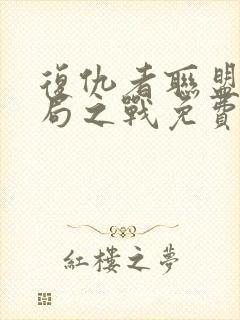 復仇者聯盟
局之戰免費
紅樓之夢